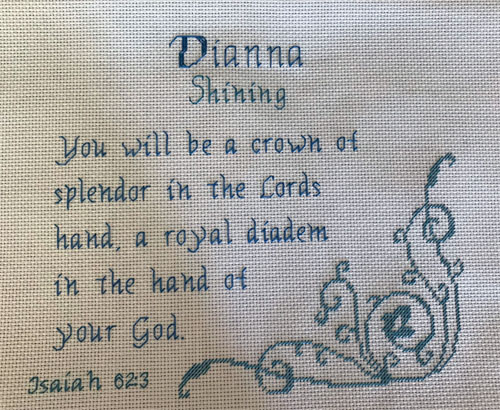 Dianna
Shining
You will be a crown of
splendor in the Lords
hand, a royal diadem
in the hand of
your God.
Isaiah 62:3